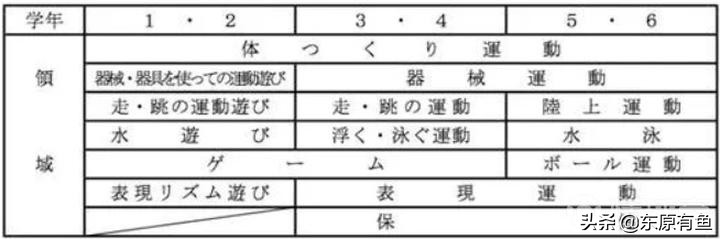 学年 1・2 3・4 5・6
領域 体つくり運動
器械・器具を使っての運動遊び 器械運動
走・跳の運動遊び 走・跳の運動 陸上運動
水遊び 浮く・泳ぐ運動 水泳
ゲーム ボール運動
表現リズム遊び 表現運動
保
头条 @东原有鱼